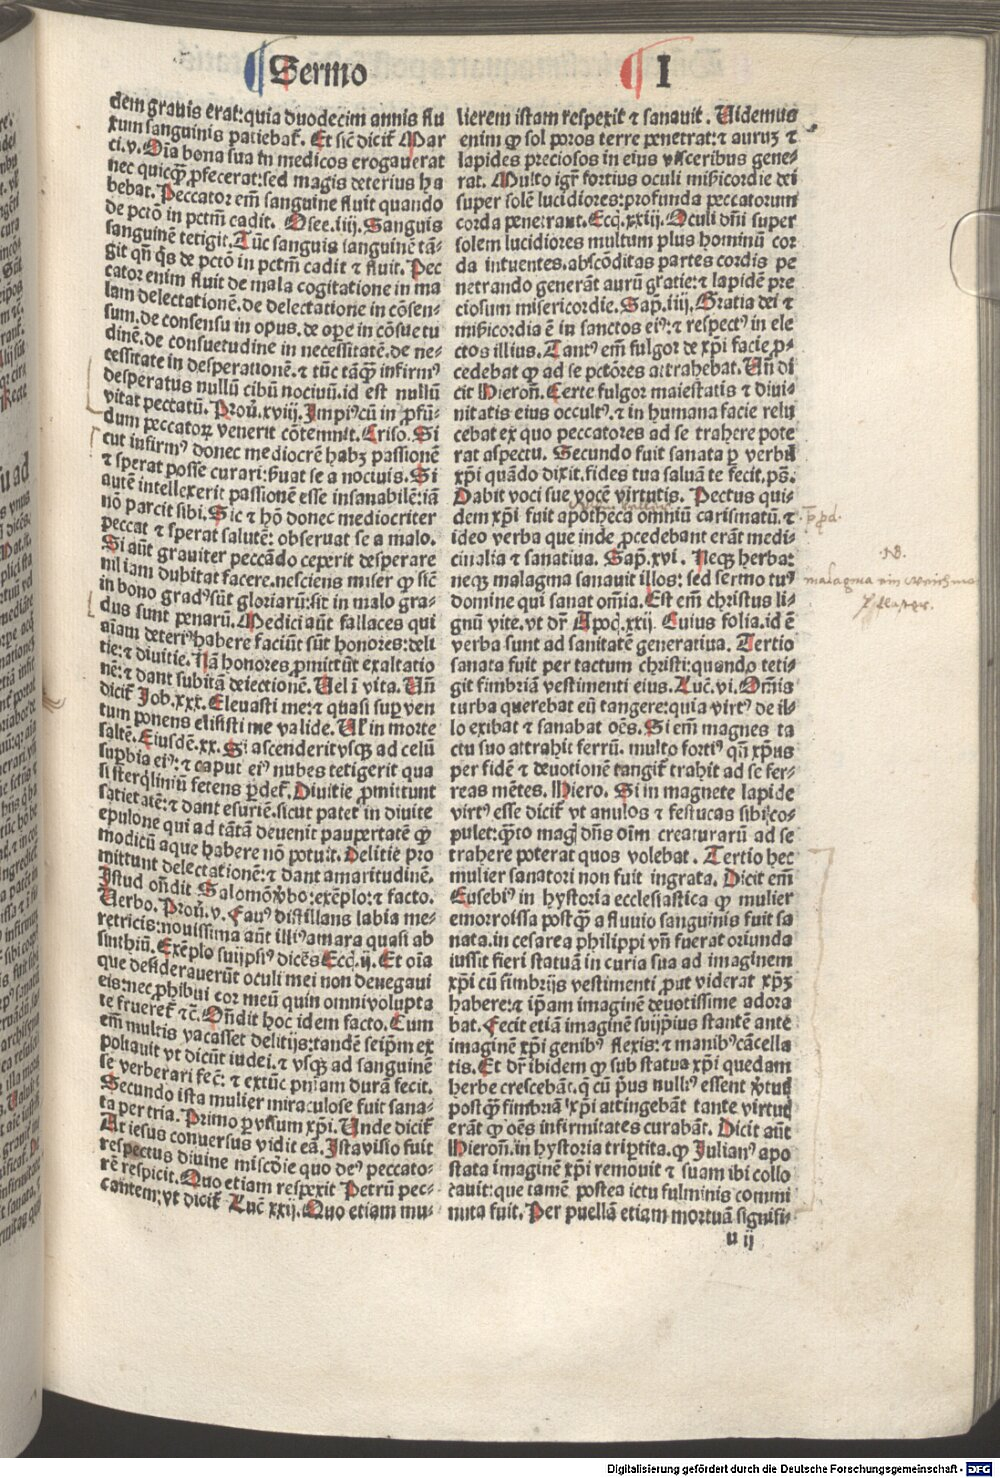 Sermo I
dem grauis erat: quia duodecim annis flu
xum sanguinis patiebat᷑. Et sic̄ dicit᷑ Mar
ci.v. Oīa bona sua in medicos erogauerat
nec quicqꝫ ꝓfecerat: sed magis deterius ha
bebat. Peccator em̄ sanguine fluit quando
de pctō in pctm̄ cadit. Osee.iiij. Sanguis
sanguinē tetigit. Tūc sanguis sanguinē tā⸗
git qn̄ qs de pctō in pctm̄ cadit ⁊ fluit. Pec
cator enim fluit de mala cogitatione in ma
lam delectationē. de delectatione in cōsen⸗
sum. de consensu in opus. de oꝑe in cōsuetu
dinē. de consuetudine in necessitatē. de ne⸗
cessitate in desperationē. ⁊ tūc tāqꝫ infirmꝰ
desperatus nullū cibū nociuū. id est nullū
vitat peccatū. Prou̅.xviij. Impiꝰ cū in ꝓfū⸗
dum peccatoꝝ venerit cōtemnit. Criso. Si
cut infirmꝰ donec mediocrē habꝫ passionē
⁊ sperat posse curari: ẜuat se a nociuis. Si
autē intellexerit passionē esse insanabilē: iā
nō parcit sibi. Sic ⁊ hō donec mediocriter
peccat ⁊ sperat salutē: obseruat se a malo.
Si aūt grauiter peccādo ceperit desperare
nil iam dubitat facere. nesciens miser ꝙ sic̄
in bono gradꝰ sūt gloriarū: sic in malo gra⸗
dus sunt penarū. Medici aūt fallaces qui
aīam deteriꝰ habere faciūt sūt honores: deli
tie: ⁊ diuitie. Nā honores ꝓmittūt exaltatio
nē: ⁊ dant subitā deiectionē. Uel ī vita. Un̄
dicit᷑ Job.xxx. Eleuasti me: ⁊ quasi suꝑ ven
tum ponens elisisti me valide. Ul̓ in morte
saltē. Eiusdē.xx. Si ascenderit vsqꝫ ad celū
suꝑbia eiꝰ: ⁊ caput eiꝰ nubes tetigerit qua
si sterqliniū fetens ꝑdet᷑. Diuitie ꝓmittunt
satietatē: ⁊ dant esuriē. sicut patet in diuite
epulone qui ad tātā deuenit paupertatē ꝙ
modicū aque habere nō potuit. Delitie pro
mittunt delectationē: ⁊ dant amaritudinē.
Istud on̄dit Salomō v̓bo: exēplo: ⁊ facto.
Verbo. Prou̅.v. Fauꝰ distillans labia me⸗
retricis: nouissima aūt illiꝰ amara quasi ab
sinthiū. Exēplo suijpsiꝰ dicēs Ecc̄.ij. Et oīa
que desiderauerūt oculi mei non denegaui
eis: nec ꝓhibui cor meū quin omni volupta
te frueret᷑ ⁊c̄. On̄dit hoc idem facto. Cum
em̄ multis vacasset delitijs: tandē seip̄m ex
poliauit vt dicūt iudei. ⁊ vsqꝫ ad sanguinē
se verberari fec̄: ⁊ extūc pn̄iam durā fecit.
Secundo ista mulier miraculose fuit sana⸗
ta per tria. Primo ꝑ visum xp̄i. Unde dicit᷑
At iesus conuersus vidit eā. Ista visio fuit
respectus diuine miscd̄ie quo deꝰ peccato⸗
rē respicit. Quo etiam respexit Petrū pec⸗
cantem: vt dicit᷑ Luc̄ xxij. Quo etiam mu⸗
lierem istam respexit ⁊ sanauit. Uidemus
enim ꝙ sol poros terre penetrat: ⁊ auruꝫ ⁊
lapides preciosos in eius visceribus gene⸗
rat. Multo igr̄ fortius oculi mīsericordie dei
super solē lucidiores: profunda peccatorum
corda penetrant. Ecc̄.xxiij. Oculi dn̄i super
solem lucidiores multum plus hominū cor
da intuentes. abscōditas partes cordis pe
netrando generāt aurū gratie: ⁊ lapidē pre
ciosum misericordie. Sap̄.iiij. Gratia dei ⁊
mīsericordia ē in sanctos eiꝰ: ⁊ respectꝰ in ele
ctos illius. Tantꝰ em̄ fulgor de xp̄i facie ꝓ⸗
cedebat ꝙ ad se pctōres attrahebat. Un̄ di
cit Hieron̄. Certe fulgor maiestatis ⁊ diui⸗
nitatis eius occultꝰ. ⁊ in humana facie relu
cebat ex quo peccatores ad se trahere pote
rat aspectu. Secundo fuit sanata ꝑ verbū
xp̄i quādo dixit. fides tua saluā te fecit. p̄s.
Dabit voci sue vocē virtutis. Pectus qui⸗
dem xp̄i fuit apotheca omniū carismatū. ⁊
ideo verba que inde ꝓcedebant erāt medi⸗
cinalia ⁊ sanatiua. Sap̄.xvi. Neqꝫ herba:
neqꝫ malagma sanauit illos: sed sermo tuꝰ
domine qui sanat om̄ia. Est em̄ christus li⸗
gnū vite. vt dr̄ Apoc̄.xxij. Cuius folia. id ē
verba sunt ad sanitatē generatiua. Tertio
sanata fuit per tactum christi: quando teti⸗
git fimbriā vestimenti eius. Luc̄.vi. Om̄is
turba querebat eū tangere: quia virtꝰ de il⸗
lo exibat ⁊ sanabat oēs. Si em̄ magnes ta
ctu suo attrahit ferrū. multo fortiꝰ qn̄ xp̄us
per fidē ⁊ deuotionē tangit᷑ trahit ad se fer⸗
reas mētes. Hiero. Si in magnete lapide
virtꝰ esse dicit᷑ vt anulos ⁊ festucas sibi co⸗
pulet: qͣ̄to magꝭ dn̄s oīm creaturarū ad se
trahere poterat quos volebat. Tertio hec
mulier sanatori non fuit ingrata. Dicit em̄
Eusebiꝰ in hystoria ecclesiastica ꝙ mulier
emorroissa postqꝫ a fluuio sanguinis fuit sa
nata. in cesarea philippi vn̄ fuerat oriunda
iussit fieri statuā in curia sua ad imaginem
xp̄i cū fimbrijs vestimenti ꝓut viderat xp̄ꝫ
habere: ⁊ ip̄am imaginē deuotissime adora
bat. Fecit etiā imaginē suijp̄ius stantē ante
imaginē xp̄i genibꝰ flexis: ⁊ manibꝰ cācella
tis. Et dr̄ ibidem ꝙ sub statua xp̄i quedam
herbe crescebāt. q̄ cū pͥus nulliꝰ essent v̓tut͛
postqꝫ fimbriā xp̄i attingebāt tante virtut͛
erāt ꝙ oēs infirmitates curabāt. Dicit aūt
Hieron̄. in hystoria triptita. ꝙ Julianꝰ apo
stata imaginē xp̄i remouit ⁊ suam ibi collo
cauit: que tamē postea ictu fulminis commi
nuta fuit. Per puellā etiam mortuā signifi⸗
u ij
NB.
malagma ein weich
pflaster.
Digitalisierung gefördert durch die Deutsche Forschungsgemeinschaft - DFG